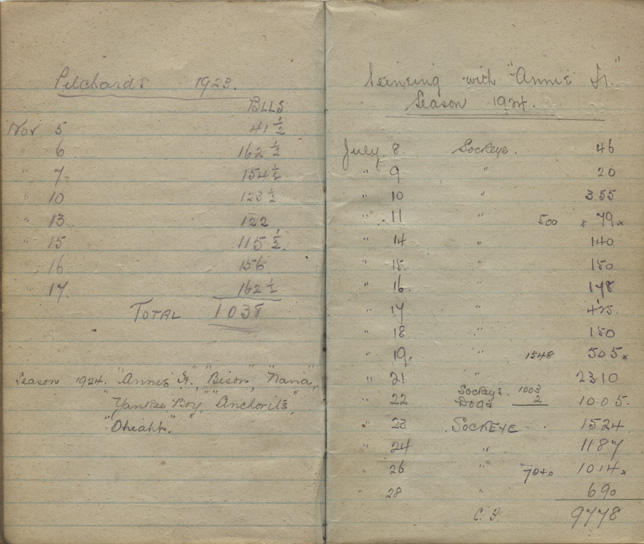 Pilchards 1923.
BLLS
Nov 5 41½
" 6 162½
" 7 154½
" 10 123½
" 13 122
" 15 115½
" 16 156
" 17. 162½
TOTAL 1038
Season 1924. "Annie Jr.", "Bison", "Nana",
"Yankee Boy,"
Seineing with "Annie Jr."
Season 1924.
July 8 Sockeye. 46
" 9 " 20
" 10 " 355
" 11 " 500 x 79x
" 14 " 140
" 15 " 150
" 16 " 178
" 17 " 425
" 18 " 150
" 19. " 1548 505x
" 21 " 2310
" 22 Sockeye 1003
Dogs 2 1005.
" 23 SOCKEYE 1524
" 24 " 1187
" 26 " 7040 1014x
" 28 " 690
9778